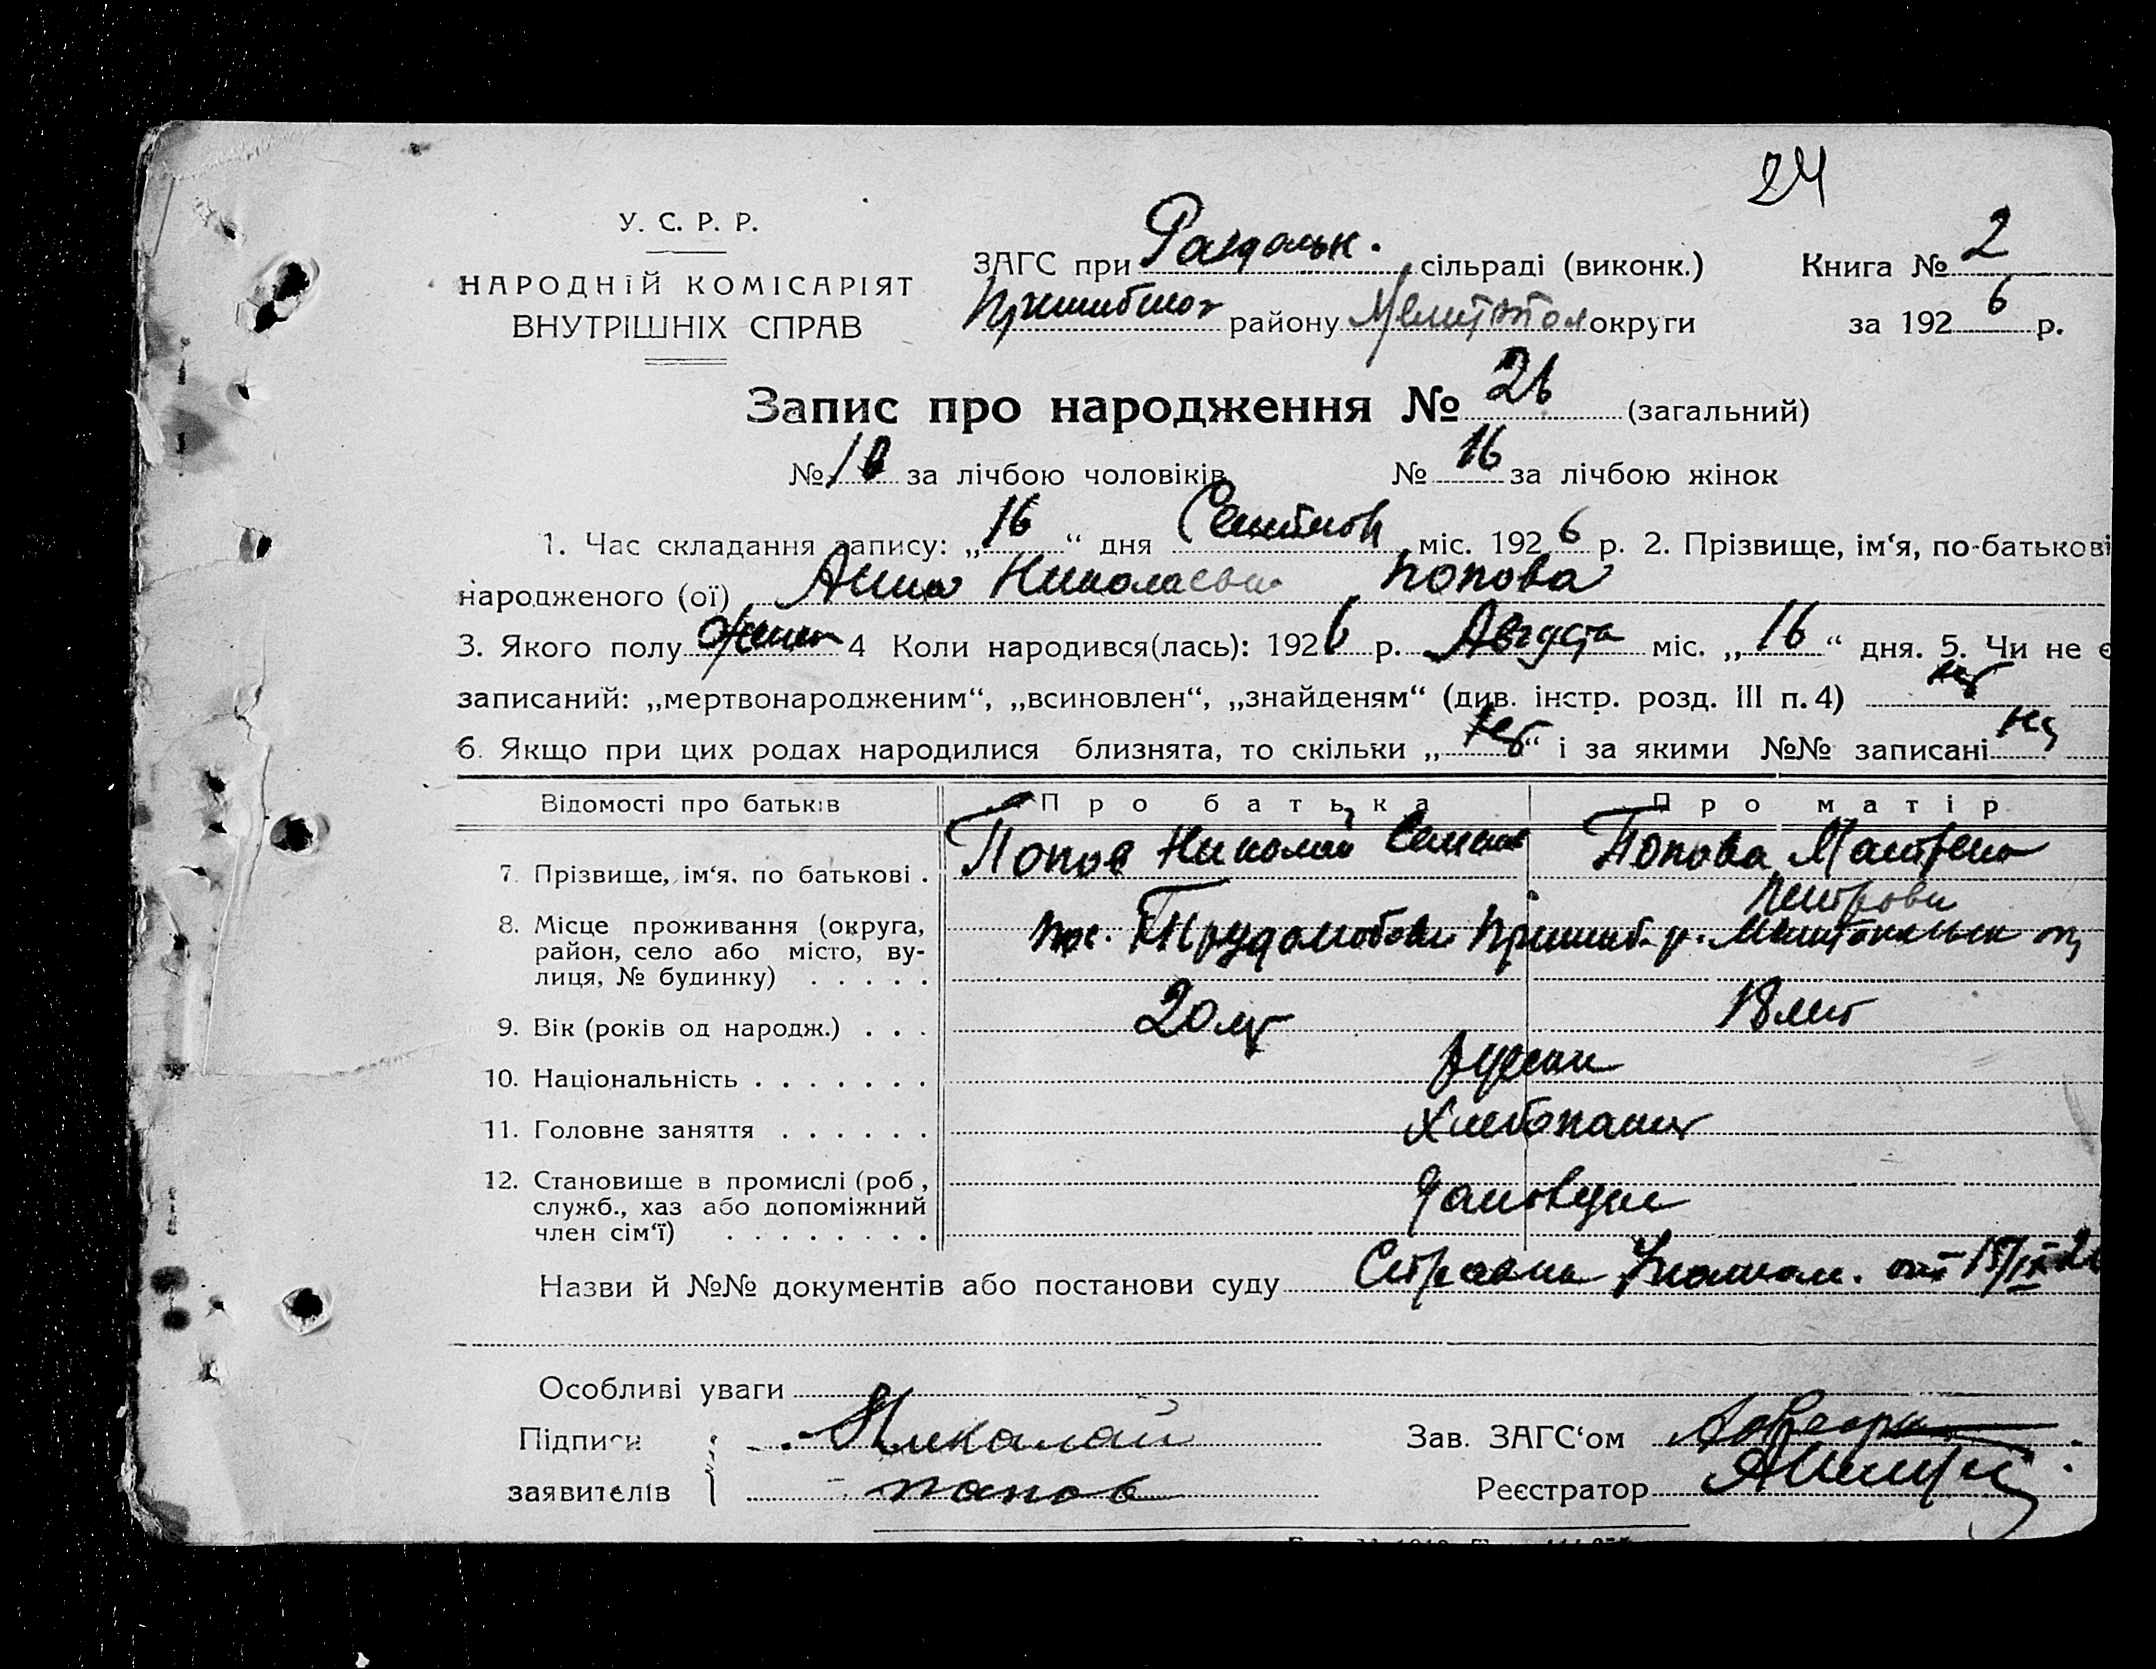 24
У. С. Р. Р.
НАРОДНІЙ КОМІСАРІЯТ
ВНУТРІШНІХ СПРАВ
ЗАГС при Раздольск. сільраді (виконк.) Книга № 2
району округи за 1926 р.
Запис про народження № 26 (загальний)
№ 10 за лічбою чоловіків № 16 за лічбою жінок
1. Час складання запису: „16“ дня міс. 1926 р. 2. Прізвище, ім‘я, по-батькові
народженого (ої) Анна Николаевна Попова
3. Якого полу 4 Коли народився(лась): 1926 р. Августа міс. „16“ дня. 5. Чи не є
записаний: „мертвонародженим“, „всиновлен“, „знайденям“ (див. інстр. розд. III п. 4) нет
6. Якщо при цих родах народилися близнята, то скільки „нет“ і за якими №№ записані
Відомості про батьків Про батька Про матір
7. Прізвище, ім‘я, по батькові . Попов Николай Семенов Попова Матрена
Петровн
8. Місце проживання (округа,
район, село або місто, ву-
лиця, № будинку) . . . . . пос. Пришиб. р.
9. Вік (років од народж.) . . . 20 лет 18 лет
10. Національність . . . . . . . русские
11. Головне заняття . . . . . . Хлебопашц
12. Становище в промислі (роб,
служб., хаз або допоміжний
член сім‘ї) . . . . . . . .
Назви й №№ документів або постанови суду от 15/IX 26
Особливі уваги
Підписи Николай Зав. ЗАГС‘ом
заявителів попов Реєстратор